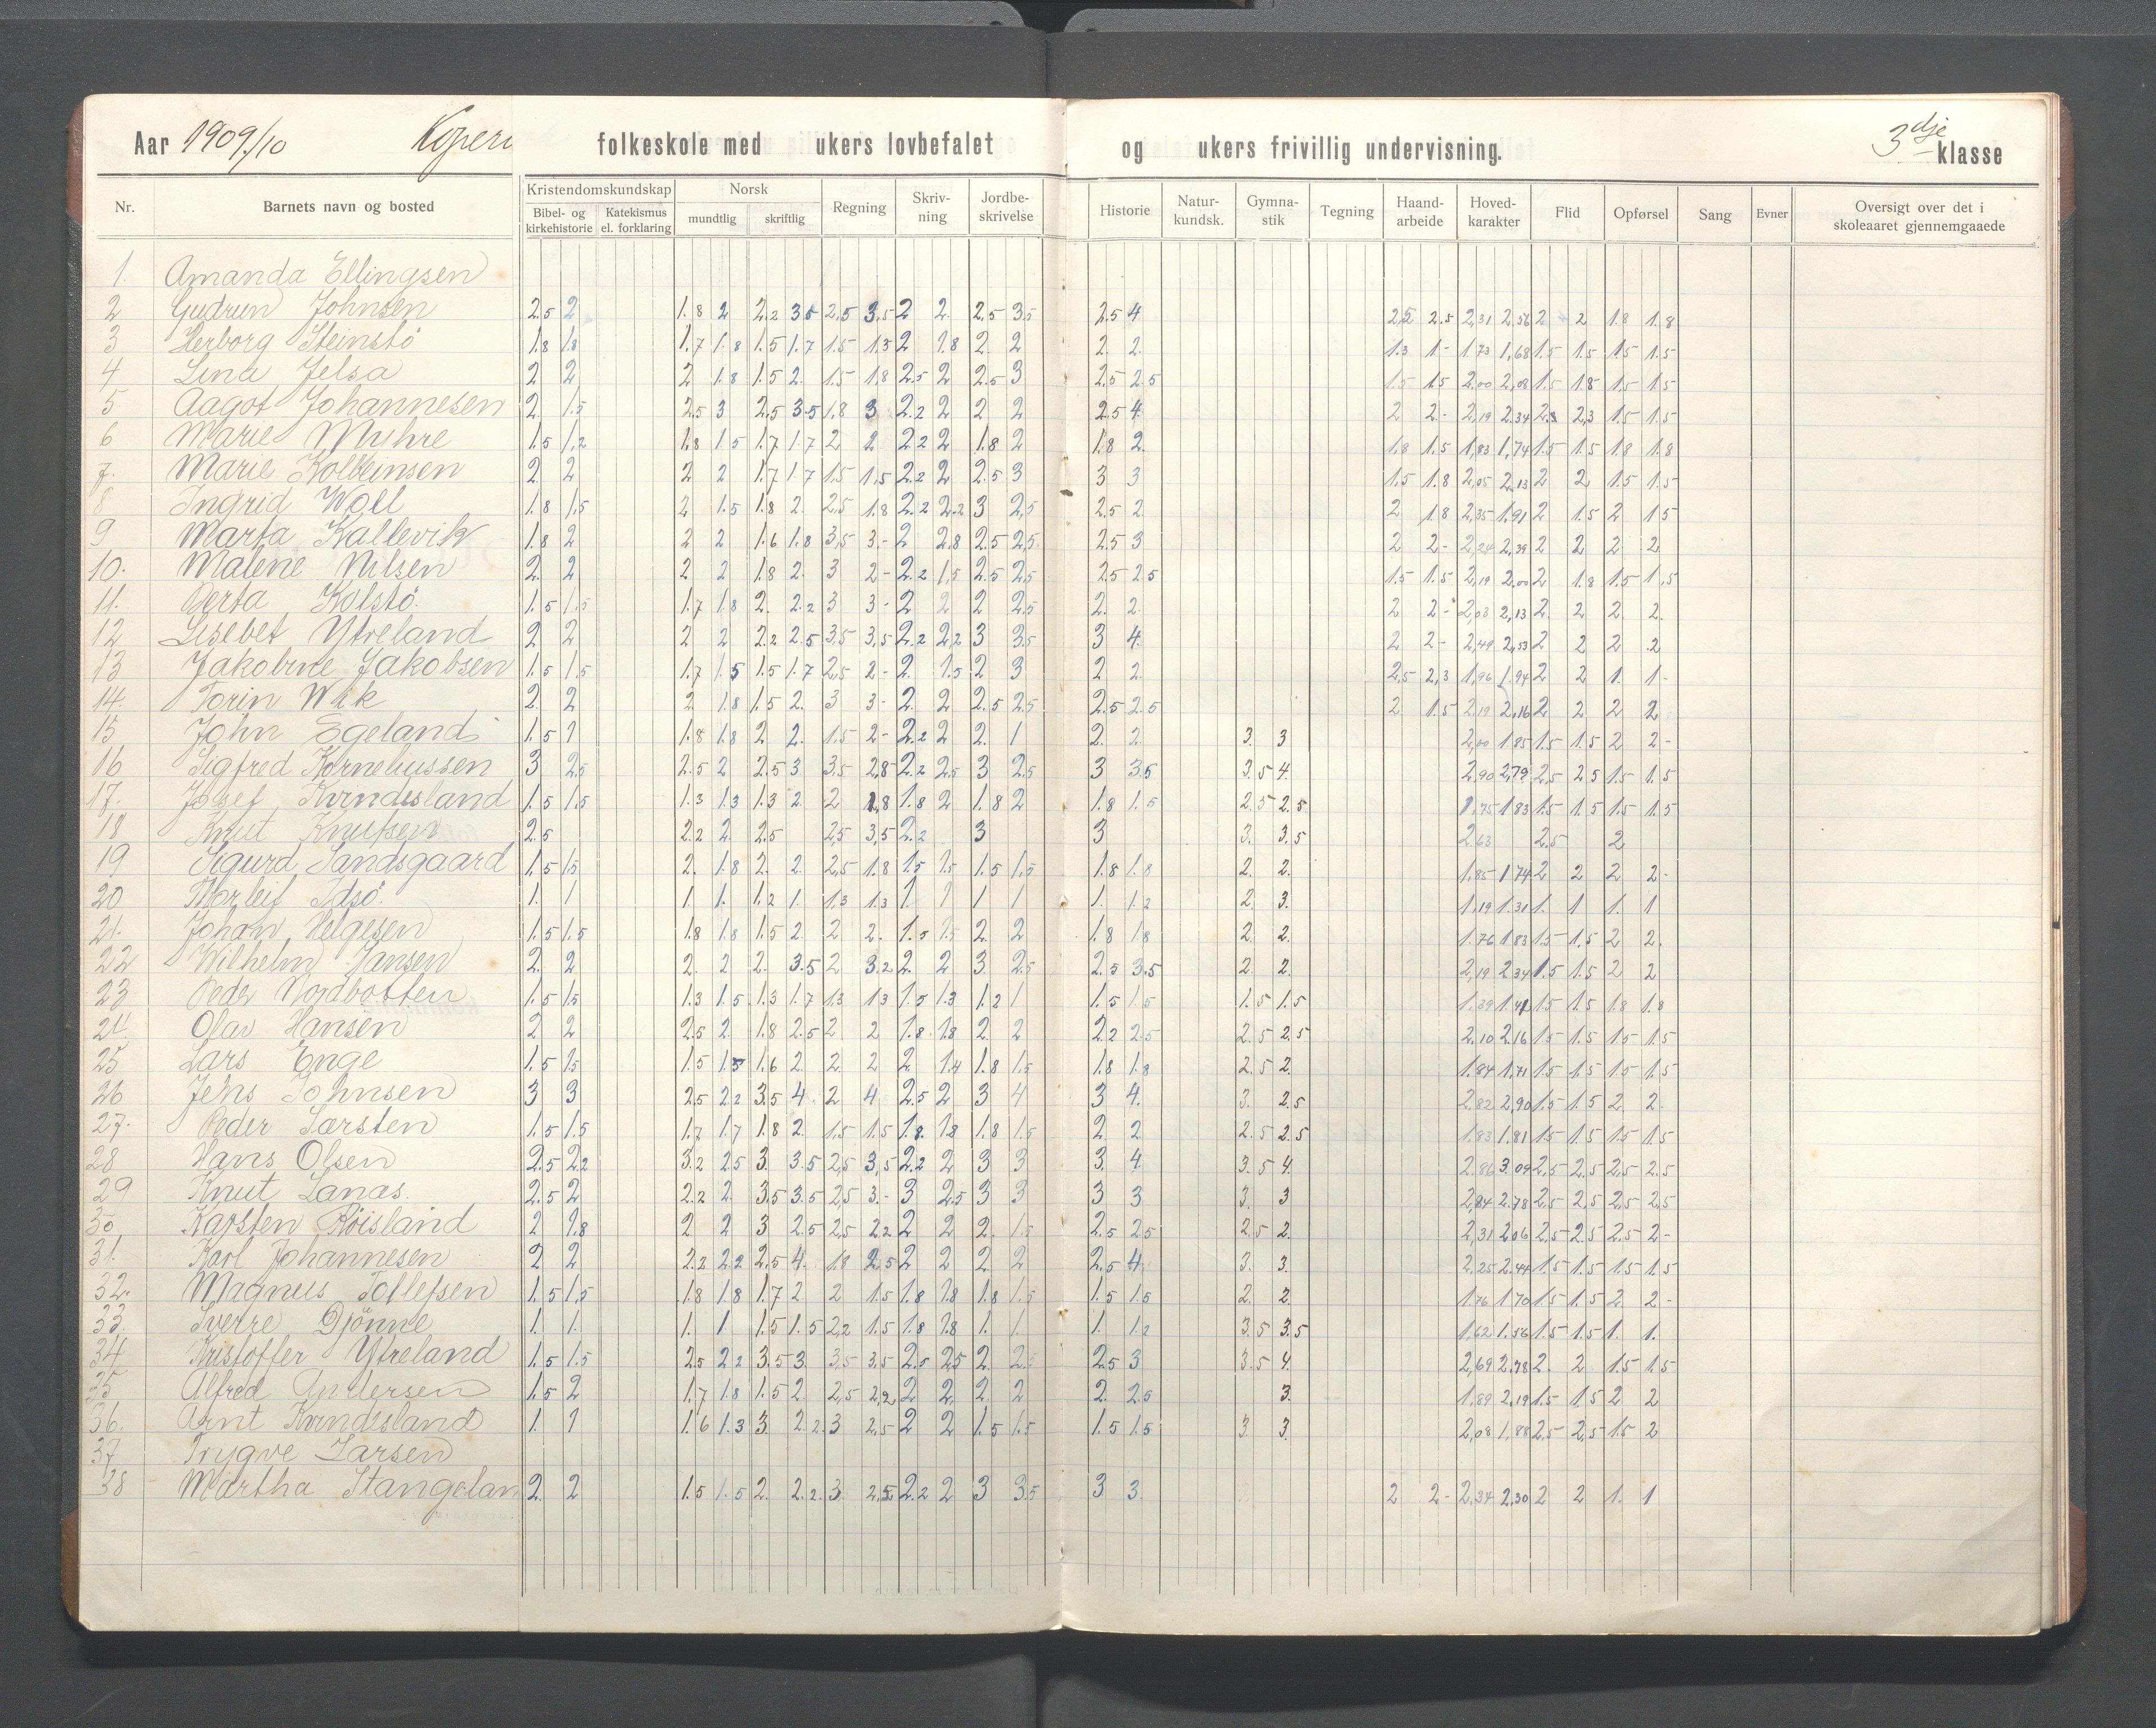 Aar 1909/10 Koperv folkeskole med ukers lovbefalet og ukers frivillig undervisning. 3dje klasse
Nr. Barnets navn og bosted Kristendomskundskap Bibel- og kirkehistorie Katekismus el. forklaring Norsk mundtlig skriftlig Regning Skriv-ning Jordbe-skrivelse Historie Natur-kundsk. Gymna-stik Tegning Haand-arbeide Hoved-karakter Flid Opførsel Sang Evner Oversigt over det i skoleaaret gjennemgaaede
1. Amanda Ellingsen
2 Gudrun Johnsen 2.5 2 1.8 2 2.2 3.5 2,5 3,5 2 2. 2.5 3.5 2.5 4 2,5 2.5 2,31 2,56 2 2 1.8 1.8
3 Herborg Steinstö 1.8 1.8 1.7 1.8 1.5 1.7 1.5 1.3 2 1.8 2. 2 2. 2. 1.3 1- 1,73 1,68 1.5 1.5 1.5 1.5
4 Lina Jelsa 2 2 2 1.8 1.5 2. 1.5 1.8 2.5 2 2.5 3 2.5 2.5 1.5 1.5 2.00 2,08 1.5 1.8 1.5 1.5
5 Aagot Johannesen 2 1.5 2.5 3 2.5 3.5 1.8 3 2.2 2 2 2 2.5 4. 2 2.- 2,19 2.34 2.3 2,3 1.5 1.5
6 Marie Muhre 1.5 1,2 1.8 1.5 1.7 1.7 2 2 2.2 2 1.8 2 1.8 2. 1.8 1.5 1,83 1,74 1.5 1.5 1.8 1.8
7. Marie Kolbeinsen 2 2 2 2 1.7 1.7 1.5 1,5 2.2 2 2.5 3 3 3 1.5 1.8 2,05 2,13 2 2 1.5 1.5
8 Ingrid Woll 1.8 1,5 2 1.5 1.8 2. 2,5 1.8 2.2 2.2 3 2,5 2.5 2. 2 1.8 2,35 1.91 2 1.5 2 1.5
9 Marta Kallevik 1.8 2 2 2 1.6 1.8 3,5 3.- 2 2.8 2.5 2,5 2.5 3 2 2- 2,24 2,39 2 2 2 2
10. Malene Nilsen 2. 2 2 2 1.8 2. 3 2- 2.2 1,5 2.5 2.5 2.5 2.5 1.5 1.5 2,19 2.00 2 1.8 1.5 1.5
11. Berta Kolstö. 1.5 1.5 1.7 1.8 2. 2.2 3 3- 2 2 2 2.5 2. 2 2 2- 2,03 2,13 2. 2 2. 2.
12 Lisebet Ytreland 2 2 2 2 2.2 2.5 3,5 3,5 2.2 2.2 3 3.5 3 4. 2 2- 2,49 2,53 2 2 2 2
13 Jakobine Jakobsen 1.5 1.5 1.7 1.5 1.5 1.7 2,5 2- 2. 1.5 2 3 2 2. 2,5 2,3 1,96 1.94 2 2 1. 1-
14. Torin Wik 2 2 2 1.8 1.5 2. 3 3- 2. 2 2.5 2.5 2.5 2.5 2 1.5 2,19 2,16 2 2 2 2
15 John Egeland 1.5 1 1.8 1.8 2 2. 1.5 2- 2.2 2 2. 1 2. 2. 3. 3 2,00 1.85 1.5 1.5 2 2-
16 Sigfred Korneliussen 3 2,5 2.5 2 2.5 3 3.5 2,8 2.2 2.5 3 2.5 3 3.5 3.5 4. 2.90 2,79 2,5 2.5 1.5 1.5
17. Josef Kvindesland 1.5 1,5 1.3 1.3 1.3 2 2 1,8 1.8 2 1.8 2 1.8 1.5 2.5 2.5 1.75 1.83 1.5 1.5 1.5 1.5
18 Knut Knutsen 2.5 2.2 2. 2.5 2,5 3,5 2.2 3 3 3. 3.5 2.63 2.5 2
19 Sigurd Sandsgaard 1.5 1.5 2. 1.8 2. 2. 2,5 1.8 1.5 1.5 1.5 1.5 1.8 1.8 2. 2. 1.85 1.74 2 2 2 2-
20 Thorleif Idsö. 1. 1 1 1. 1.2 1. 1.3 1.3 1 1 1 1 1. 1.2 2. 3. 1,19 1.31 1. 1 1. 1
21. Johan Helgesen 1.5 1.5 1.8 1.8 1.5 2 2 2. 1.5 1.5 2. 2 1.8 1.8 2 2. 1.76 1.83 1.5 1.5 2 2.
22 Wilhelm Jansen 2. 2 2. 2 2. 3.5 2 3.2 2. 2 3 2.5 2.5 3.5 2. 2. 2,19 2.34 1.5 1.5 2 2
23 Peder Nordbotten 1.5 1.5 1.3 1.5 1.3 1.7 1.3 1.3 1.5 1.3 1.2 1 1.5 1.5 1.5 1.5 1.39 1.41 1.5 1.5 1.8 1.8
24 Olav Hansen 2 2 2.5 2. 1.8 2.5 2 2 1.8 1.8 2. 2 2.2 2.5 2.5 2.5 2.10 2.16 1.5 1.5 1.5 1.5
25 Lars Enge 1.5 1.5 1.5 1.5 1.6 2 2. 2 2 1.4 1.8 1.5 1.8 1.8 2.5 2. 1.84 1,71 1.5 1.5 1.5 1.5
26 Jens Johnsen 3 3 2.5 2.2 3.5 4. 2 4 2.5 2 3 4 3 4. 3. 2.5 2.82 2,90 1.5 1.5 2 2.
27. Peder Larsten 1.5 1.5 1.7 1.7 1.8 2. 1.5 1.5 1.8. 1.8 1.8 1.5 2. 2 2.5 2.5 1.83 1.81 1.5 1.5 1.5 1.5
28 Hans Olsen 2.5 2.2 3.2 2.5 3. 3.5 2,5 3,5 2.2 2 3 3 3. 4. 3.5 4. 2.86 3.09 2,5 2.5 2,5 2.5
29 Knut Lanas. 2.5 2 2.2 2. 3.5 3.5 2,5 3.- 3 2.5 3 3 3 3 3. 3 2,84 2.78 2,5 2,5 2,5 2,5
30 Karsten Röisland 2 1.8 2 2 3 2.5 2,5 2.2 2 2 2. 1.5 2.5 2.5 2.5 2. 2,31 2.06 2.5 2.5 2.5 2-
31. Karl Johannesen 2 2 2.2 2.2 2,5 4. 1.8 2,5 2 2 2 2 2.5 4. 3. 3. 2.25 2.44 1.5 1.5 1.5 1.5
32. Magnus Tollefsen 1.5 1.5 1.8 1.8 1.7 2 2 1.5 1.8 1.8 1.8 1.5 1.5 1.5 2. 2. 1.76 1.70 1.5 1.5 2 2-
33. Sverre Djönne 1. 1. 1. 1 1.5 1.5 2,2 1.5 1.8 1.8 1. 1. 1. 1.2 3.5 3.5 1.62 1.56 1.5 1.5 1. 1.
34 Kristoffer Ytreland 1.5 1.5 2.5 2.2 3.5 3. 3,5 3,5 2.5 2.5 2. 2.5 2.5 3 3.5 4. 2,69 2.78 2. 2 1.5 1.5
35 Alfred Andersen 1.5 2 1.7 1.8 1.5 2. 2,5 2,2 2 2. 2. 2 2. 2.5 3. 1,89 2,19 1.5 1.5 2 2
36. Arnt Kvindesland 1. 1 1.6 1.3 3. 2.2. 3 2,5 2 2 1.5 1.5 1.5 1.5 3 3. 2,08 1,88 2,5 2,5 1.5 2
37 Trygve Larsen
38 Martha Stangelan 2. 2 1.5 1.5 2. 2.2. 3. 2,5 2.2 2 3 3.5 3. 3. 2 2- 2,34 2,30 2 2 1. 1